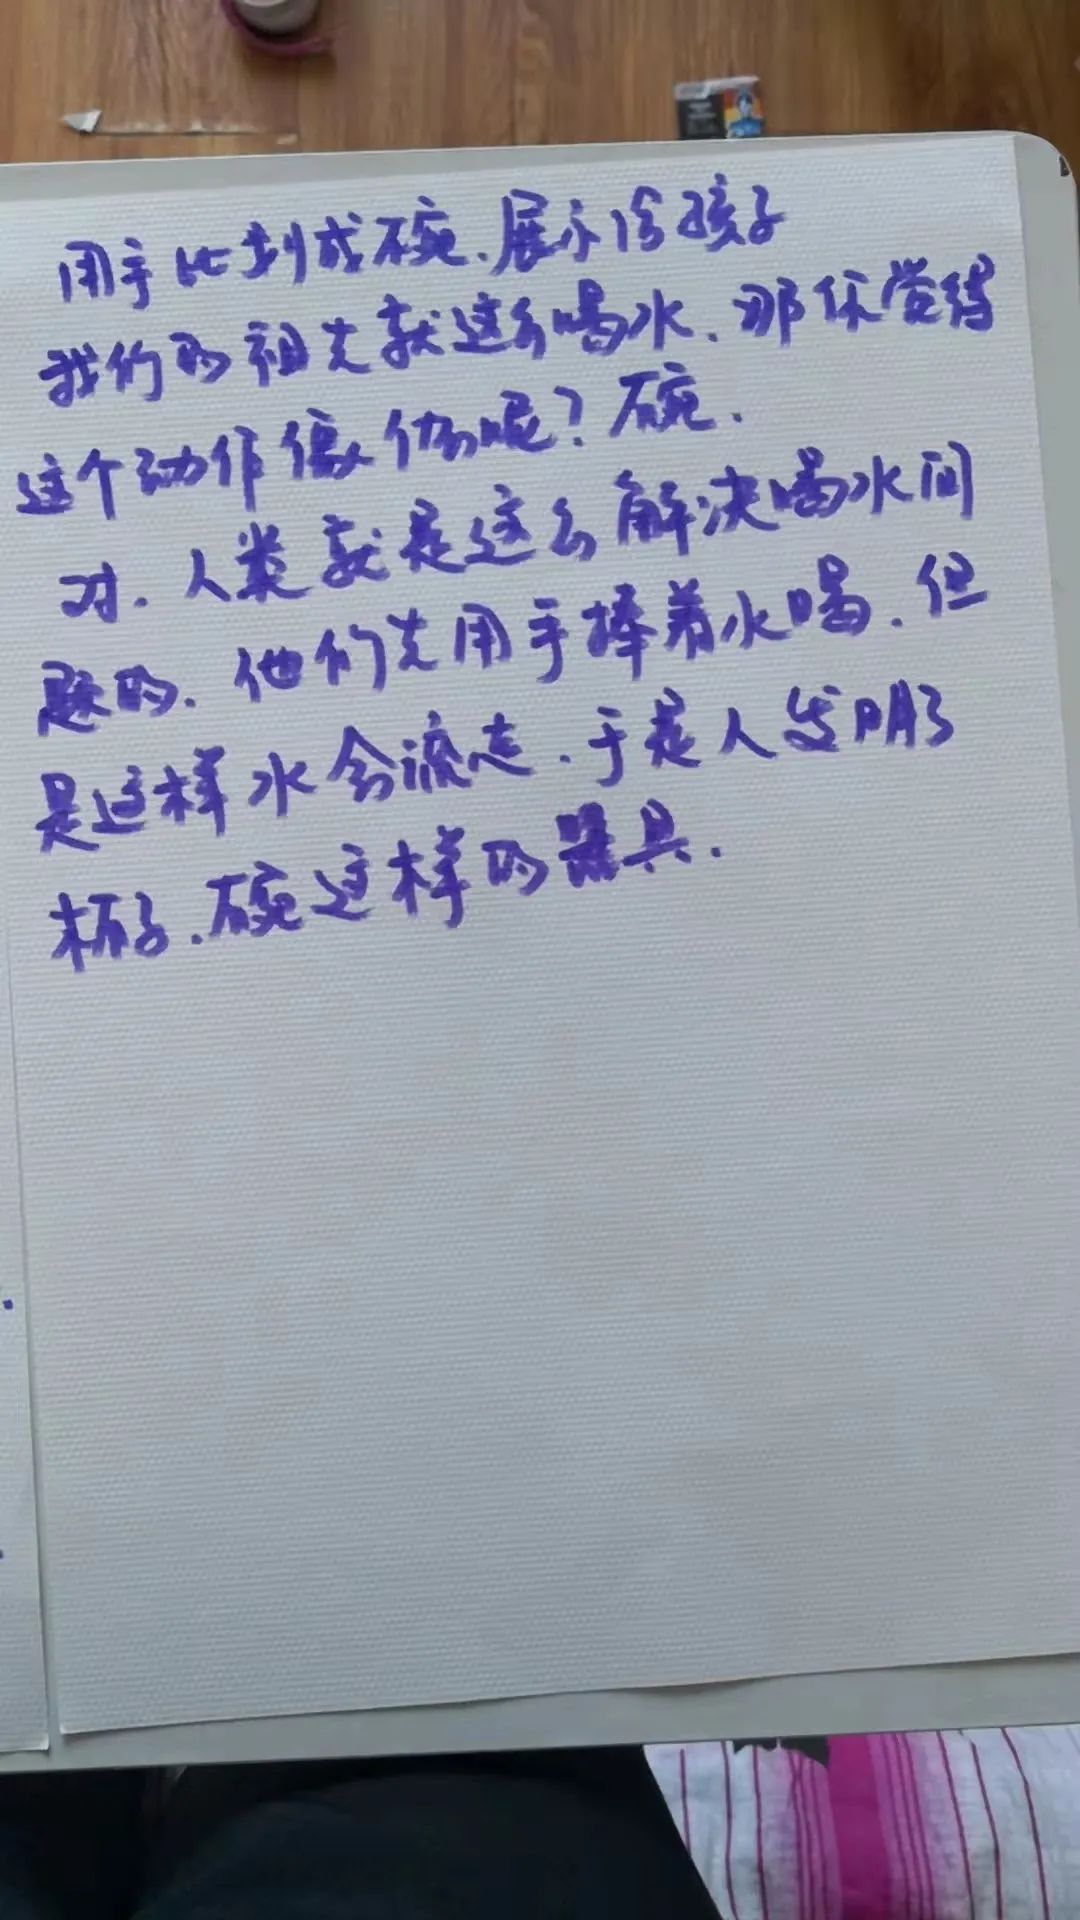 用手比划成碗、展示给孩子
我们的祖先就这么喝水、那你觉得
这个动作像什么呢？碗.
对. 人类就是这么解决喝水问
题的. 他们先用手捧着水喝. 但
是这样水会流走. 于是人发明了
杯子.碗这样的器具.